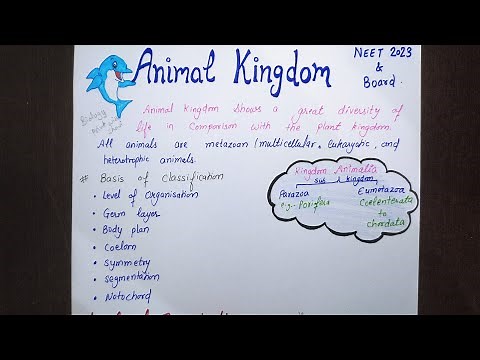 Animal Kingdom
NEET 2023
&
Board.
Biology
Animal kingdom shows a great diversity of
life in Comparison with the plant kingdom.
All animals are metazoan / multicellular, eukaryotic, and
heterotrophic animals.
# Basis of classification
• Level of Organisation
• Germ layer
• Body plan
• Coelom
• Symmetry
• Segmentation
• Notochord
Kingdom Animalia
sub kingdom
Parazoa
e.g:- Porifera
Eumetazoa
Coelenterata
to
Chordata